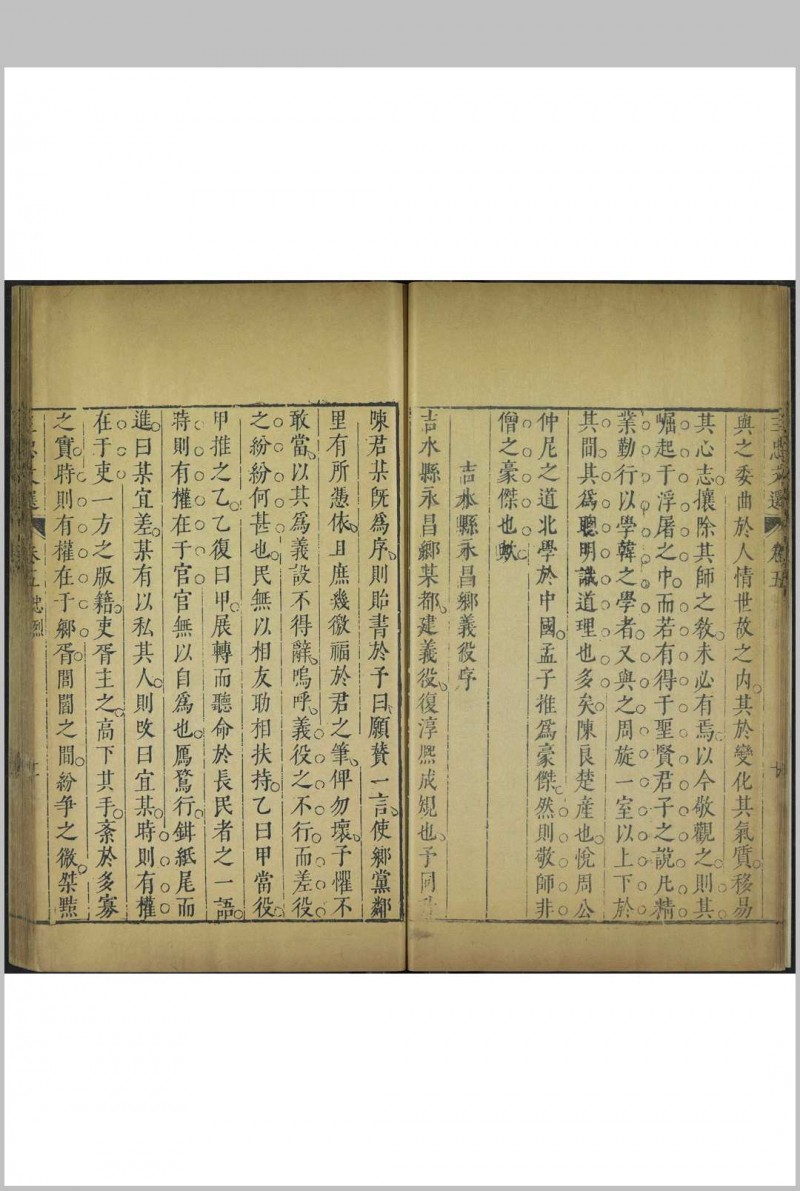 三忠文選 卷五
與之委曲於人情世故之内其於變化其氣質移易
其心志攘除其師之教未必有焉以今敬觀之則其
崛起于浮屠之中而若有得于聖賢君子之說凡精
業勤行以學韓之學者又與之周旋一室以上下於
其間其爲聰明識道理也多矣陳良楚産也悅周公
仲尼之道北學於中國孟子推爲豪傑然則敬師非
僧之豪傑也歟
吉水縣永昌鄉義役序
吉水縣永昌鄉某都建義役復淳熈成規也予同
陳君某旣爲序則貽書於予曰願贊一言使鄉黨鄰
里有所憑依且庶幾徼福於君之筆俾勿壞予懼不
敢當以其爲義設不得辭嗚呼義役之不行而差役
之紛紛何甚也民無以相友助相扶持乙曰甲當役
甲推之乙乙復曰甲展轉而聽命於長民者之一語
時則有權在于官官無以自爲也鴈鶩行鉗紙尾而
進曰某宜差某有以私其人則改曰宜某時則有權
在于吏一方之版籍吏胥主之高下其手紊於多寡
之實時則有權在于鄉胥閭閻之間紛争之微桀黠
三忠文選 卷五忠烈